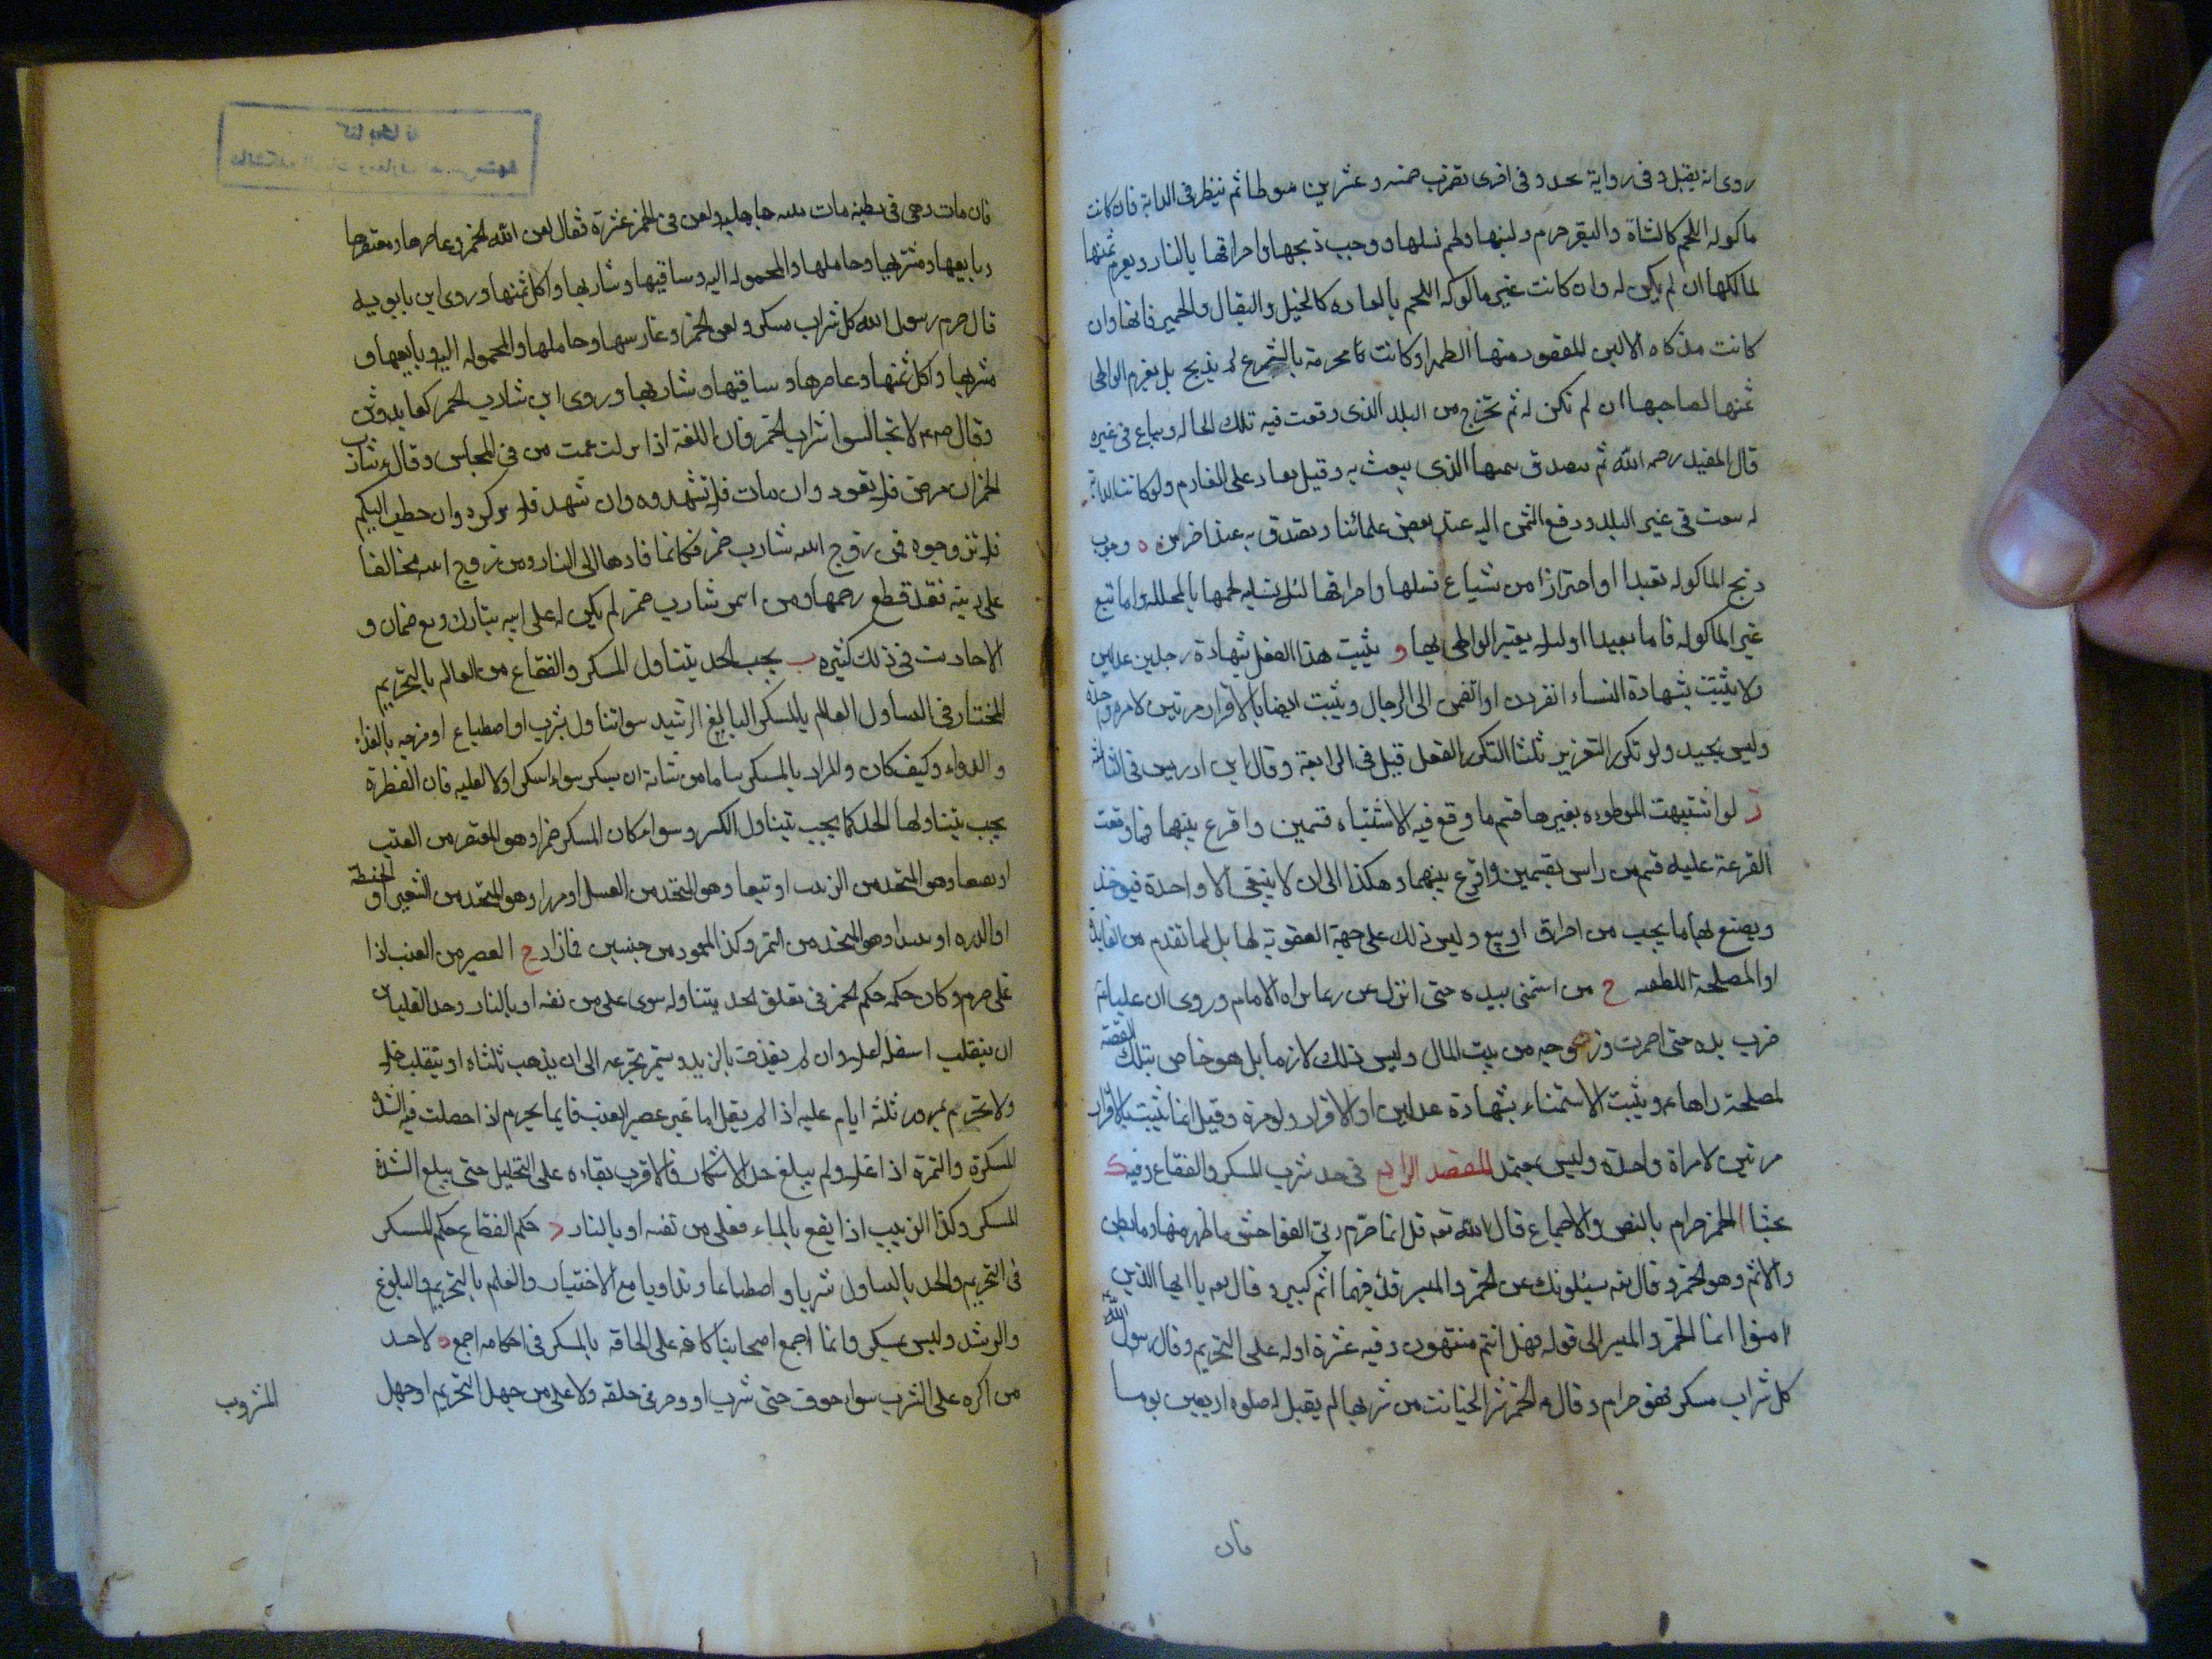 روى انه يقتل وفى رواية يحد وفى اخرى يضرب خمسه وعشرين سوطا ثم ينظر فى الدابة فان كانت
ماكوله اللحم كالشاة والبقر حرم ولبنها ولحم نسلها ووجب ذبحها واحراقها بالنار ويغرم ثمنها
لمالكها ان لم يكن له وان كانت غير ماكوله اللحم بالعاده كالخيل والبغال والحمير فانها وان
كانت الا ان المقصود منها الظهر او كانت محرمة بالشرع لم يذبح بل يغرم الواطى
ثمنها لصاحبها ان لم تكن له ثم تخرج من البلد الذى وقعت فيه تلك الحاله ويباع فى غيره
قال المفيد رحمه الله ثم يتصدق بثمنها الذى بيعت به وقيل يعاد على الغارم ولو كانت الدابة
له بيعت فى غير البلد ودفع الثمن اليه عند بعض علمائنا ويتصدق به عند اخرين ه وجوب
ذبح الماكوله تعبدا او احترازا من شياع نسلها واحراقها لئلا يشتبه لحمها بالمحلله واما تبع
غير الماكوله فاما تعبدا او لئلا يعير الواطى بها و يثبت هذا الفعل بشهادة رجلين عدلين
ولا يثبت بشهادة النساء انفردن او انضمن الى الرجال ويثبت ايضا بالاقرار مرتين لا مرة واحدة
وليس بجيد ولو تكرر التعزير ثلثا لتكرر الفعل قيل فى الرابعة وقال ابن ادريس فى الثالثة
ز لو اشتبهت الموطوءه بغيرها قسم ما وقع فيه الاشتباه قسمين واقرع بينهما فما وقعت
القرعة عليه قسم من راس بقسمين واقرع بينهما وهكذا الى ان لا يبقى الا واحدة فيؤخذ
ويصنع بها ما يجب من احراق او بيع وليس ذلك على جهة العقوبة لها بل لما تقدم من الفايدة
او المصلحة ح من استمنى بيده حتى انزل عزر بما يراه الامام وروى ان عليا
ضرب يده حتى احمرت وزوجه من بيت المال وليس ذلك لازما بل هو خاص بتلك القضية
لمصلحة راها ويثبت الاستمناء بشهادة عدلين او الاقرار ولو مرة وقيل انما يثبت بالاقرار
مرتين لا مراة واحدة وليس بجيد المقصد الرابع فى حد شرب المسكر والفقاع وفيه
بحثا ا الخمر حرام بالنص والاجماع قال الله تعـ قل انما حرم ربى الفواحش ما ظهر منها وما بطن
والاثم وهو الخمر وقال تعـ يسئلونك عن الخمر والميسر قل فيهما اثم كبير وقال تعـ يا ايها الذين
امنوا انما الخمر والميسر الى قوله فهل انتم منتهون وفيه عشرة ادله على التحريم وقال رسول الله
كل شراب مسكر فهو حرام وقال الخمر شر الخبائث من شربها لم يقبل له صلوة اربعين يوما
فان
فان مات وهى فى بطنه مات ميته جاهليه ولعن فى الخمر عشرة فقال لعن الله الخمر وعاصرها ومعتصرها
وبايعها ومشتريها وحاملها والمحموله اليه وساقيها وشاربها واكل ثمنها وروى ابن بابويه
قال حرم رسول الله كل شراب مسكر ولعن الخمر وغارسها وحاملها والمحموله اليه وبايعها و
مشتريها واكل ثمنها وعاصرها وساقيها وشاربها وروى ان شارب الخمر كعابد وثن
وقال لا تجالسوا شراب الخمر فان اللعنة اذا نزلت عمت من فى المجلس وقال شارب
الخمر ان مرض فلا يعود وان مات فلا تشهدوه وان شهد فلا تزكوه وان خطب اليكم
فلا تزوجوه فمن زوج ابنته شارب خمر فكانما قادها الى النار ومن زوج ابنته مخالفا
على دينه فقد قطع رحمها ومن ائتمن شارب خمر لم يكن له على الله تبارك وتع ضمان و
الاحاديث فى ذلك كثيره ب يجب الحد بتناول المسكر والفقاع من العالم بالتحريم
المختار فى التناول العالم بالمسكر البالغ الرشيد سوا تناول بشرب او اصطباغ او مزجه بالغذاء
والدواء وكيف كان والمراد بالمسكر ما من شانه ان يسكر سواء اسكر اولا لقليه فان القطرة
يجب بتناولها الحد كما يجب بتناول الكثير وسواء كان المسكر خمرا وهو المعتصر من العنب
او نقيعا وهو المتخذ من الزبيب او تبعا وهو المتخذ من العسل او مزرا وهو المتخذ من الشعير او الحنطة
او الذره او نبيذا وهو المتخذ من التمر وكذا المعمود من جنسين فما زاد ج العصير من العنب اذا
غلى حرم وكان حكمه حكم الخمر فى تعلق الحد بتناوله سوى غلى من نفسه او بالنار وحد الغليان
ان ينقلب اسفله اعلاه وان لم يقذف بالزبد ويستمر تحريمه الى ان يذهب ثلثاه او ينقلب خلا
ولا تحريم بمرور ثلثة ايام عليه اذا لم يغل اما غير عصير العنب فانما يحرم اذا حصلت فيه الشدة
المسكرة والتمرة اذا غلا ولم يبلغ حد الاسكار فالاقرب بقاءه على التحليل حتى يبلغ الشدة
المسكر وكذا الزبيب اذا نقع بالماء فغلى من نفسه او بالنار د حكم الفقاع حكم المسكر
فى التحريم والحد بالتناول شربا واصطباغا وتداويا مع الاختيار والعلم بالتحريم والبلوغ
والرشد وليس بمسكر وانما اجمع اصحابنا كافه على الحاقه بالمسكر فى احكامه اجمع ه لا حد
من اكره على الشرب سواء خوف حتى شرب او وجر فى حلقه ولا على من جهل التحريم او جهل
المشروب